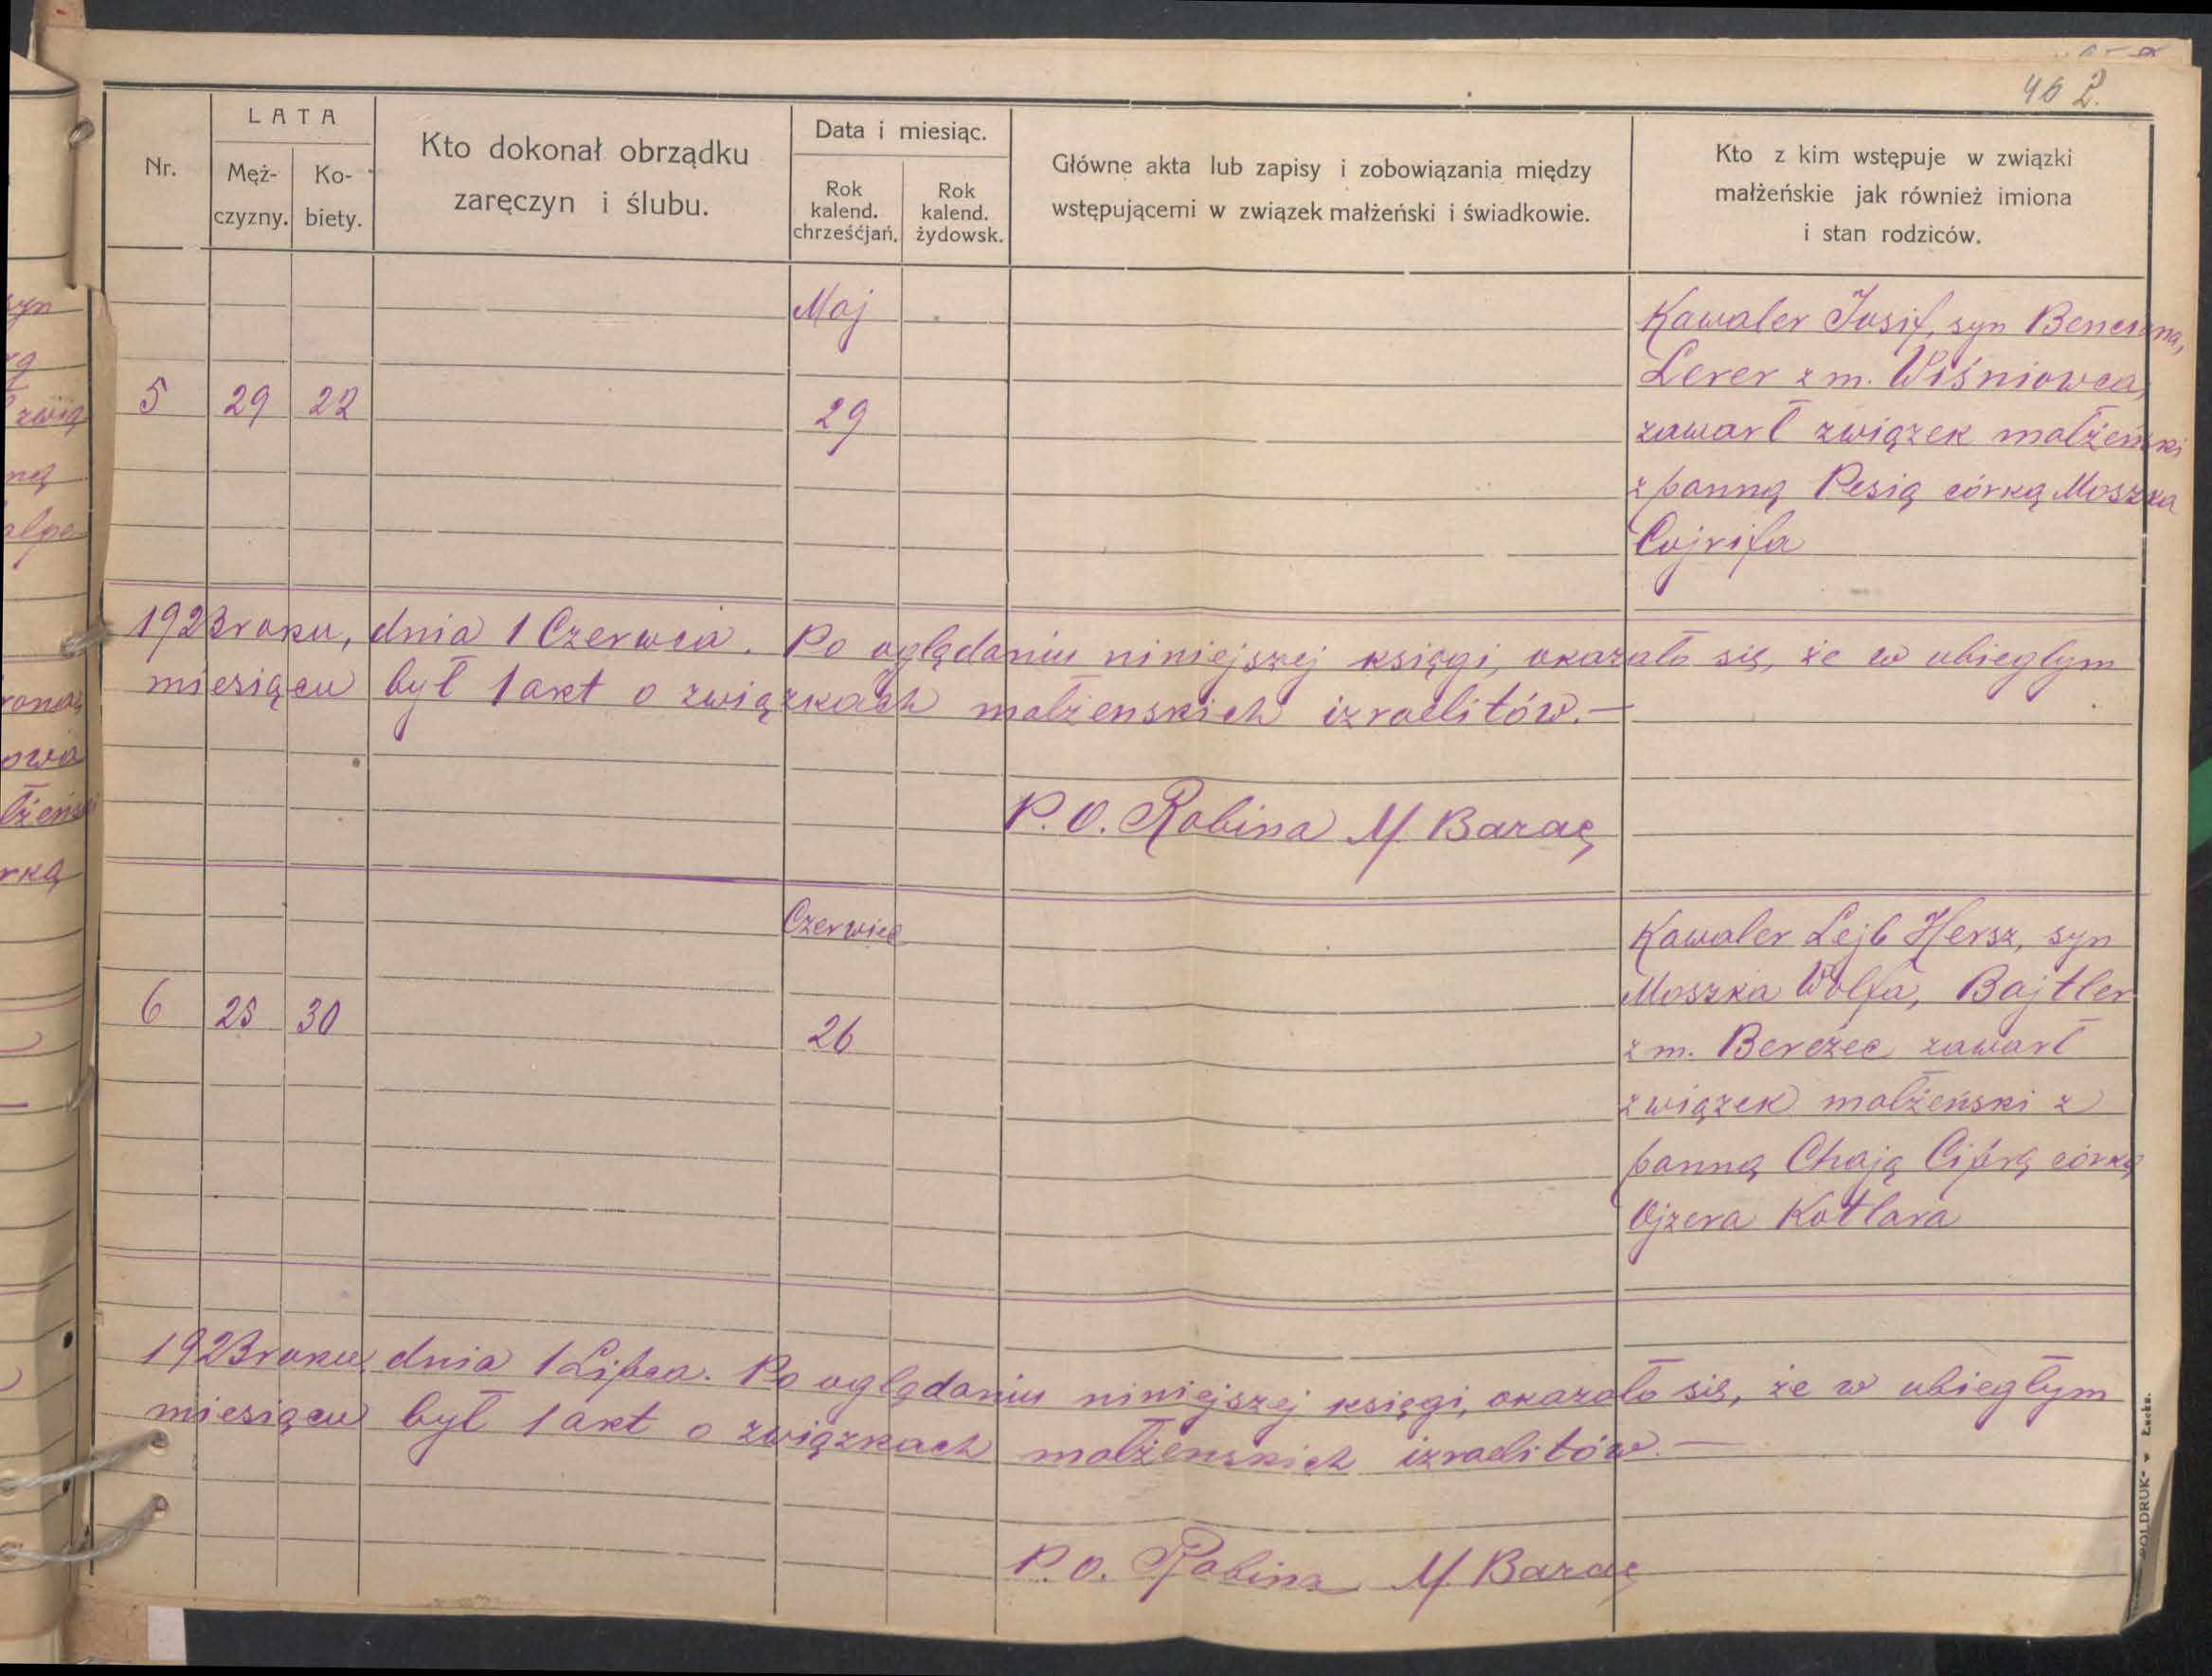 46 2.
Nr.
LATA
Męż-
czyzny.
Ko-
biety.
Kto dokonał obrządku
zaręczyn i ślubu.
Data i miesiąc.
Rok
kalend.
chrześćjań.
Rok
kalend.
żydowsk.
Główne akta lub zapisy i zobowiązania między
wstępującemi w związek małżeński i świadkowie.
Kto z kim wstępuje w związki
małżeńskie jak również imiona
i stan rodziców.
Maj
5 29 22 29
Kawaler Iosif, syn Benciona,
Lerer z m. Wiśniowca,
zawarł związek małżeński
z panną Pesią córką Moszka
Cojrifa
1923 roku, dnia 1 Czerwca. Po oglądaniu niniejszej księgi, okazało się, że w ubiegłym
miesiącu był 1 akt o związkach małżenskich izraelitów.—
P.O. Rabina M. Barac
Czerwiec
6 25 30 26
Kawaler Lejb Hersz, syn
Moszka Wolfa, Bajtler
z m. Bereżec zawarł
związek małżeński z
panną Chają Ciprą córką
Ojzera Kotlara
1923 roku, dnia 1 Lipca. Po oglądaniu niniejszej księgi, okazało się, że w ubiegłym
miesiącu był 1 akt o związkach małżenskich izraelitów.—
P.O. Rabina M. Barac
"POLDRUK" Łuck.